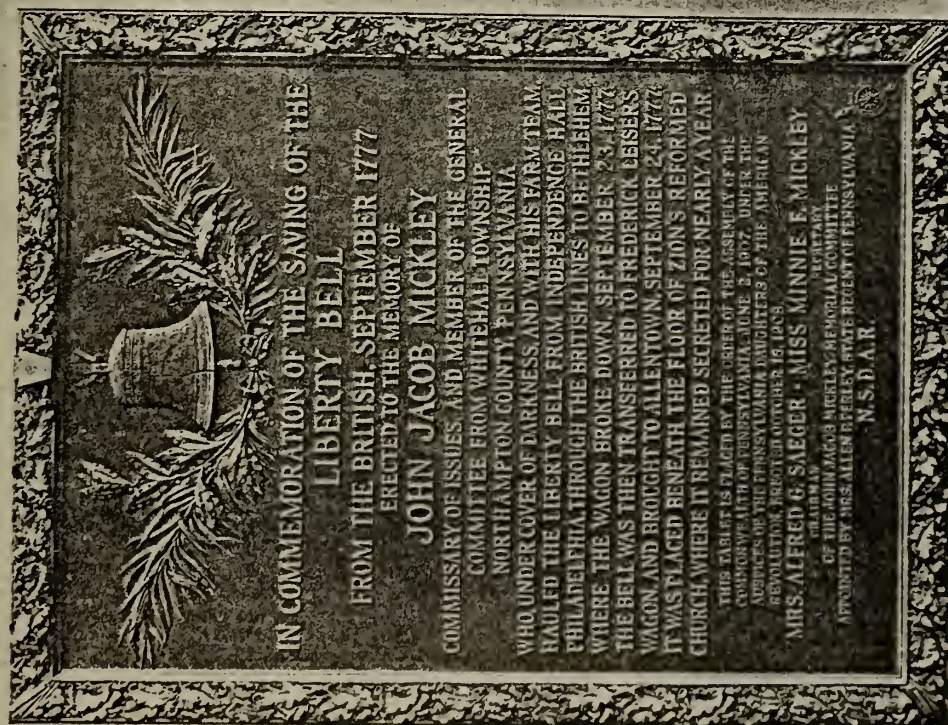 IN COMMEMORATION OF THE SAVING OF THE
LIBERTY BELL
FROM THE BRITISH, SEPTEMBER 1777
ERECTED TO THE MEMORY OF
JOHN JACOB MICKLEY
COMMISSARY OF ISSUES, AND MEMBER OF THE GENERAL
COMMITTEE FROM WHITEHALL TOWNSHIP
NORTHAMPTON COUNTY, PENNSYLVANIA
WHO UNDER COVER OF DARKNESS, AND WITH HIS FARM TEAM,
HAULED THE LIBERTY BELL FROM INDEPENDENCE HALL,
PHILADELPHIA, THROUGH THE BRITISH LINES TO BETHLEHEM,
WHERE THE WAGON BROKE DOWN, SEPTEMBER 23, 1777.
THE BELL WAS THEN TRANSFERRED TO FREDERICK LEISERS
WAGON, AND BROUGHT TO ALLENTOWN, SEPTEMBER 24, 1777.
IT WAS PLACED BENEATH THE FLOOR OF ZION'S REFORMED
CHURCH, WHERE IT REMAINED SECRETED FOR NEARLY A YEAR.
THIS TABLET IS PLACED BY THE ORDER OF THE ASSEMBLY OF THE
COMMONWEALTH OF PENNSYLVANIA, JUNE 2, 1907, UNDER THE
AUSPICES OF THE PENNSYLVANIA DAUGHTERS OF THE AMERICAN
REVOLUTION, DIRECTOR OCTOBER 15, 1908
MRS. ALFRED G. SAEGER, MISS MINNIE F. MICKLEY
CHAIRMAN SECRETARY
OF THE JOHN JACOB MICKLEY MEMORIAL COMMITTEE
APPOINTED BY MRS. ALLEN PERLEY, STATE REGENT OF PENNSYLVANIA
N.S.D.A.R.